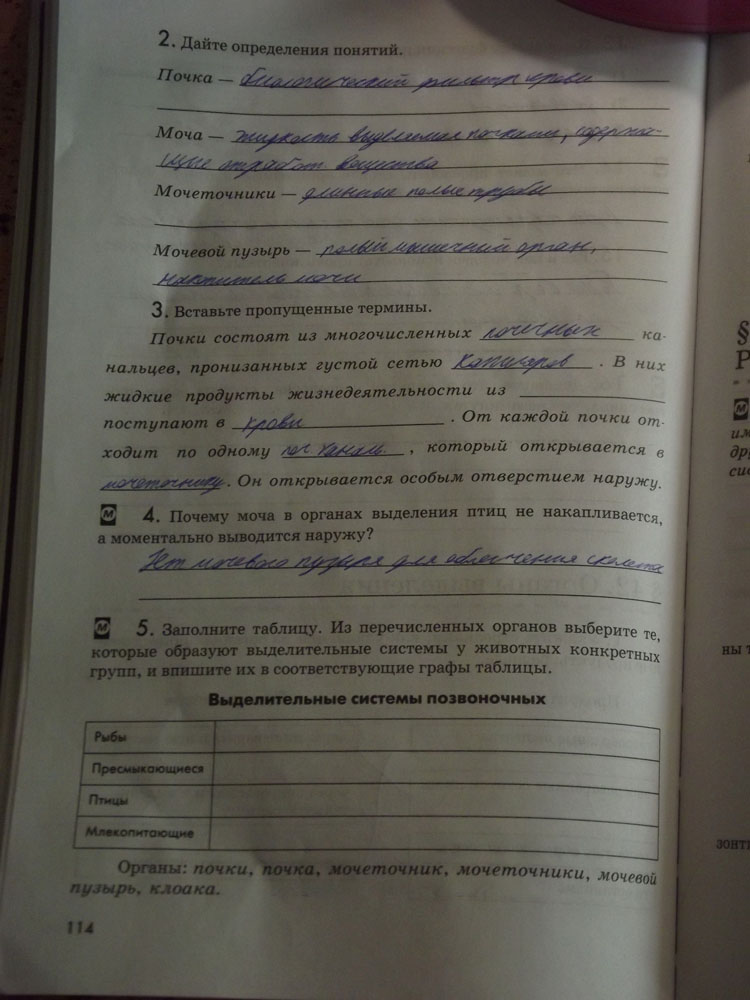 2. Дайте определения понятий.
Почка — биологический фильтр крови
Моча — жидкость выделяемая почками, содержа-
щие отработ вещества
Мочеточники — длинные полые трубы
Мочевой пузырь — полый мышечный орган,
накопитель мочи
3. Вставьте пропущенные термины.
Почки состоят из многочисленных почечных ка-
нальцев, пронизанных густой сетью капиляров . В них
жидкие продукты жизнедеятельности из
поступают в крови . От каждой почки от-
ходит по одному поч. каналь. , который открывается в
мочеточнику. Он открывается особым отверстием наружу.
М 4. Почему моча в органах выделения птиц не накапливается,
а моментально выводится наружу?
Нет мочевого пузыря для облегчения скелета
М 5. Заполните таблицу. Из перечисленных органов выберите те,
которые образуют выделительные системы у животных конкретных
групп, и впишите их в соответствующие графы таблицы.
Выделительные системы позвоночных
Рыбы
Пресмыкающиеся
Птицы
Млекопитающие
Органы: почки, почка, мочеточник, мочеточники, мочевой
пузырь, клоака.
114
§
Р
М
им
дру
сис
ны т
зонти